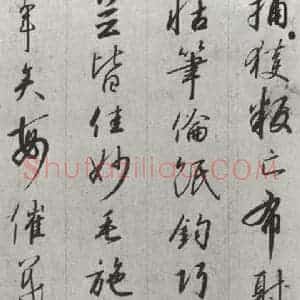 捕獲叛亡布射
恬筆倫紙鈞巧
並皆佳妙毛施
年矢每催
Shufaziliao.COM